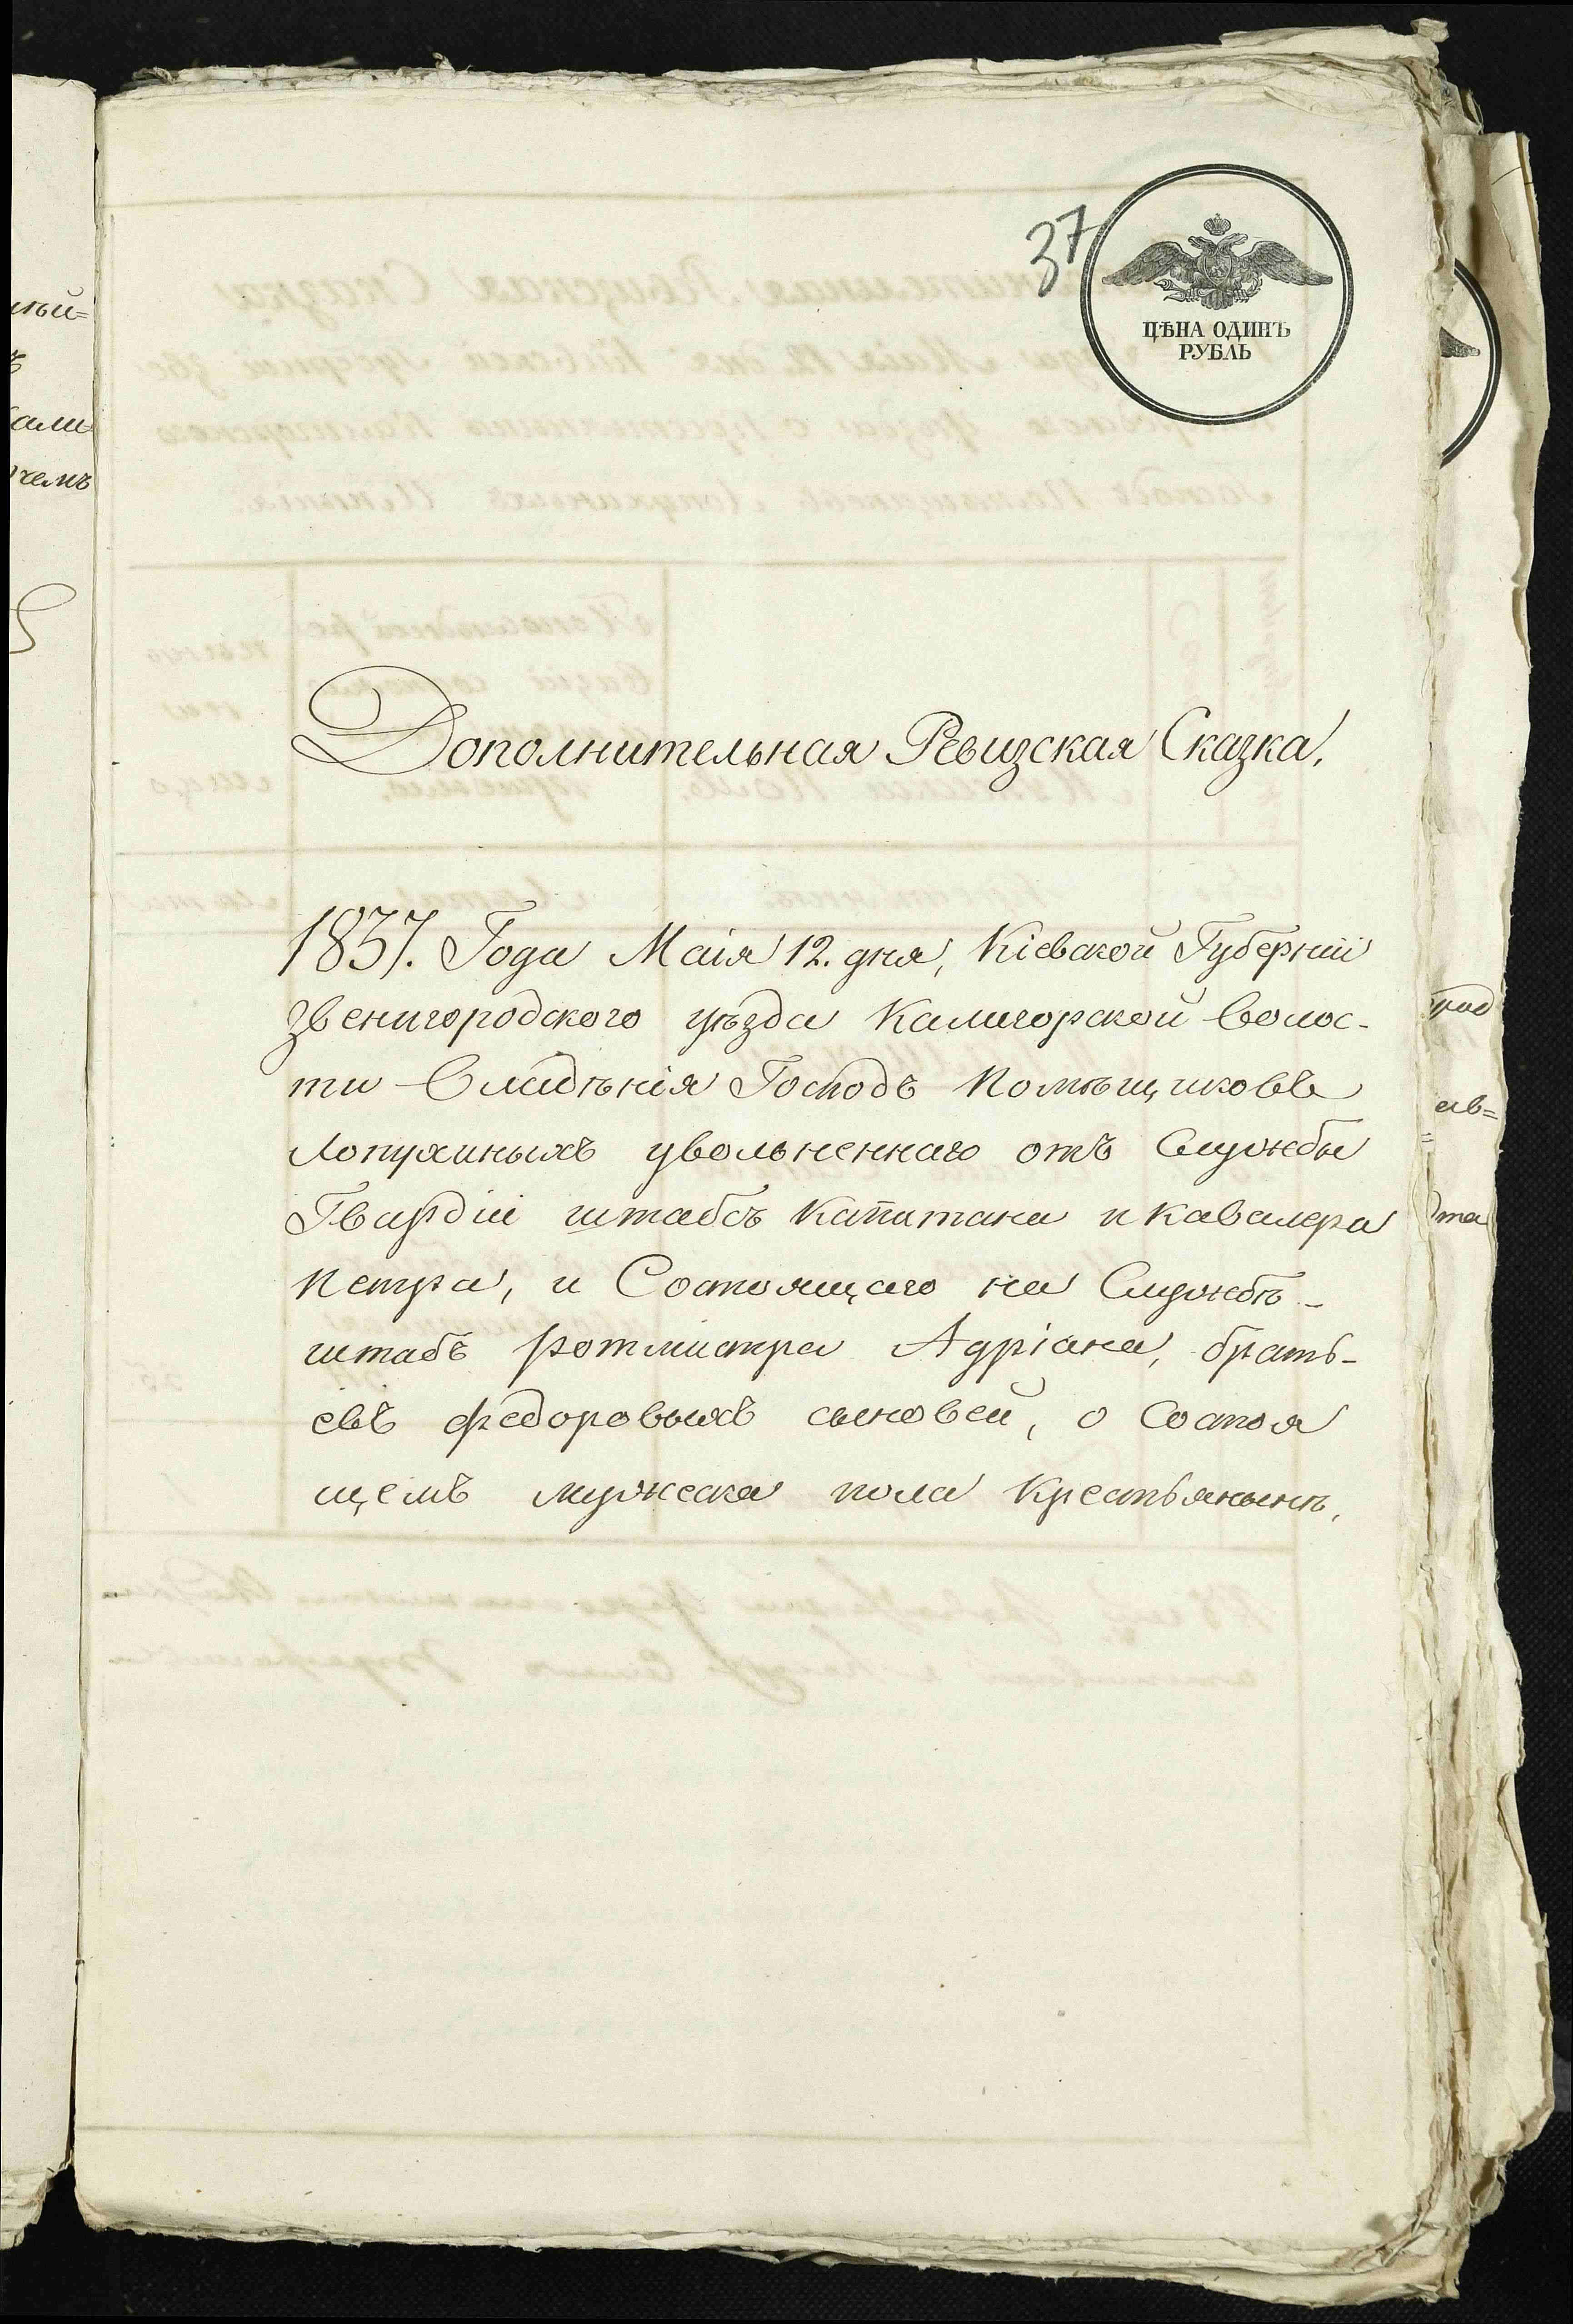 37
ЦѢНА ОДИНЪ
РУБЛЬ
Дополнительная Ревизская Сказка,
1837. Года Маія 12. дня, Кіевской Губерніи
Звенигородского уѣзда Калигорской волос-
ти Владѣнія Господъ Помѣщиковъ
Лопухиныхъ увольненнаго отъ Службы
Гвардіи штабсъ Капитана и кавалера
Петра, и Состоящаго на Службѣ-
штабъ ротмистра Адріана, брать-
евъ Федоровыхъ сыновей, о Состоя
щемъ мужеска пола Крестьянынѣ,